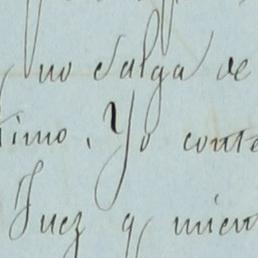 no Salga de
timo. Yo conte
Juez q mien